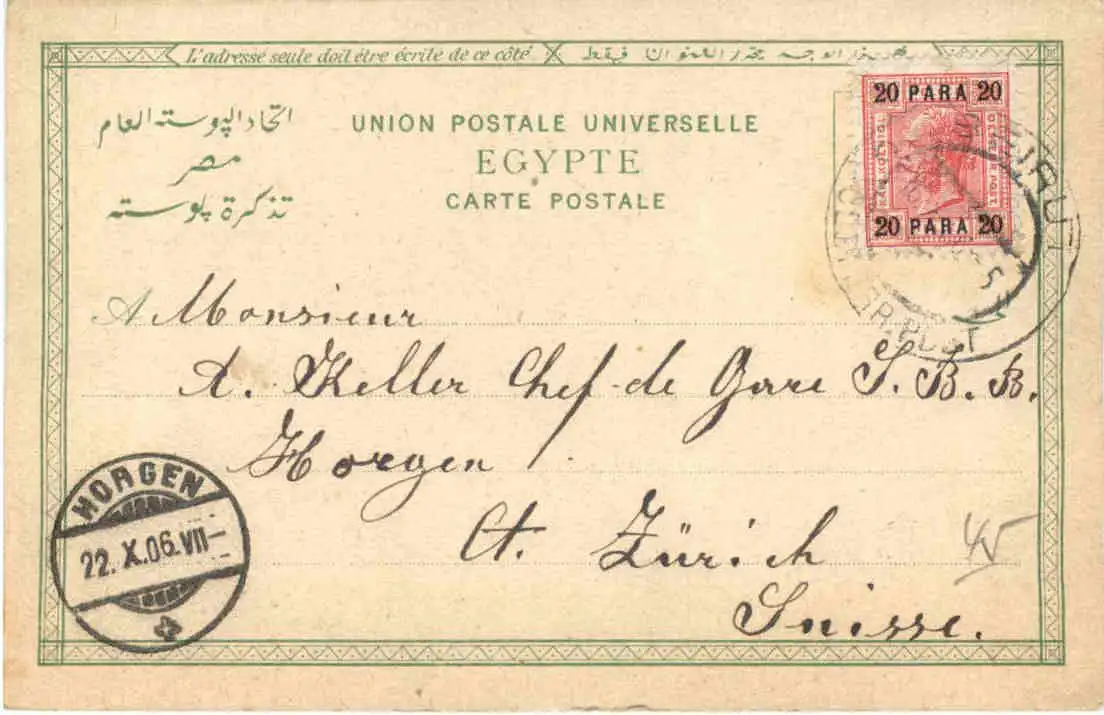 L'adresse seule doit être écrite de ce côté
UNION POSTALE UNIVERSELLE
EGYPTE
CARTE POSTALE
اتحاد البوسته العام
مصر
تذكرة بوسته
20 PARA 20
20 PARA 20
A Monsieur
A. Keller Chef-de Gare S. B. B.
Horgen
Ct. Zürich
Suisse.
HORGEN
22. X.06.VII–
45